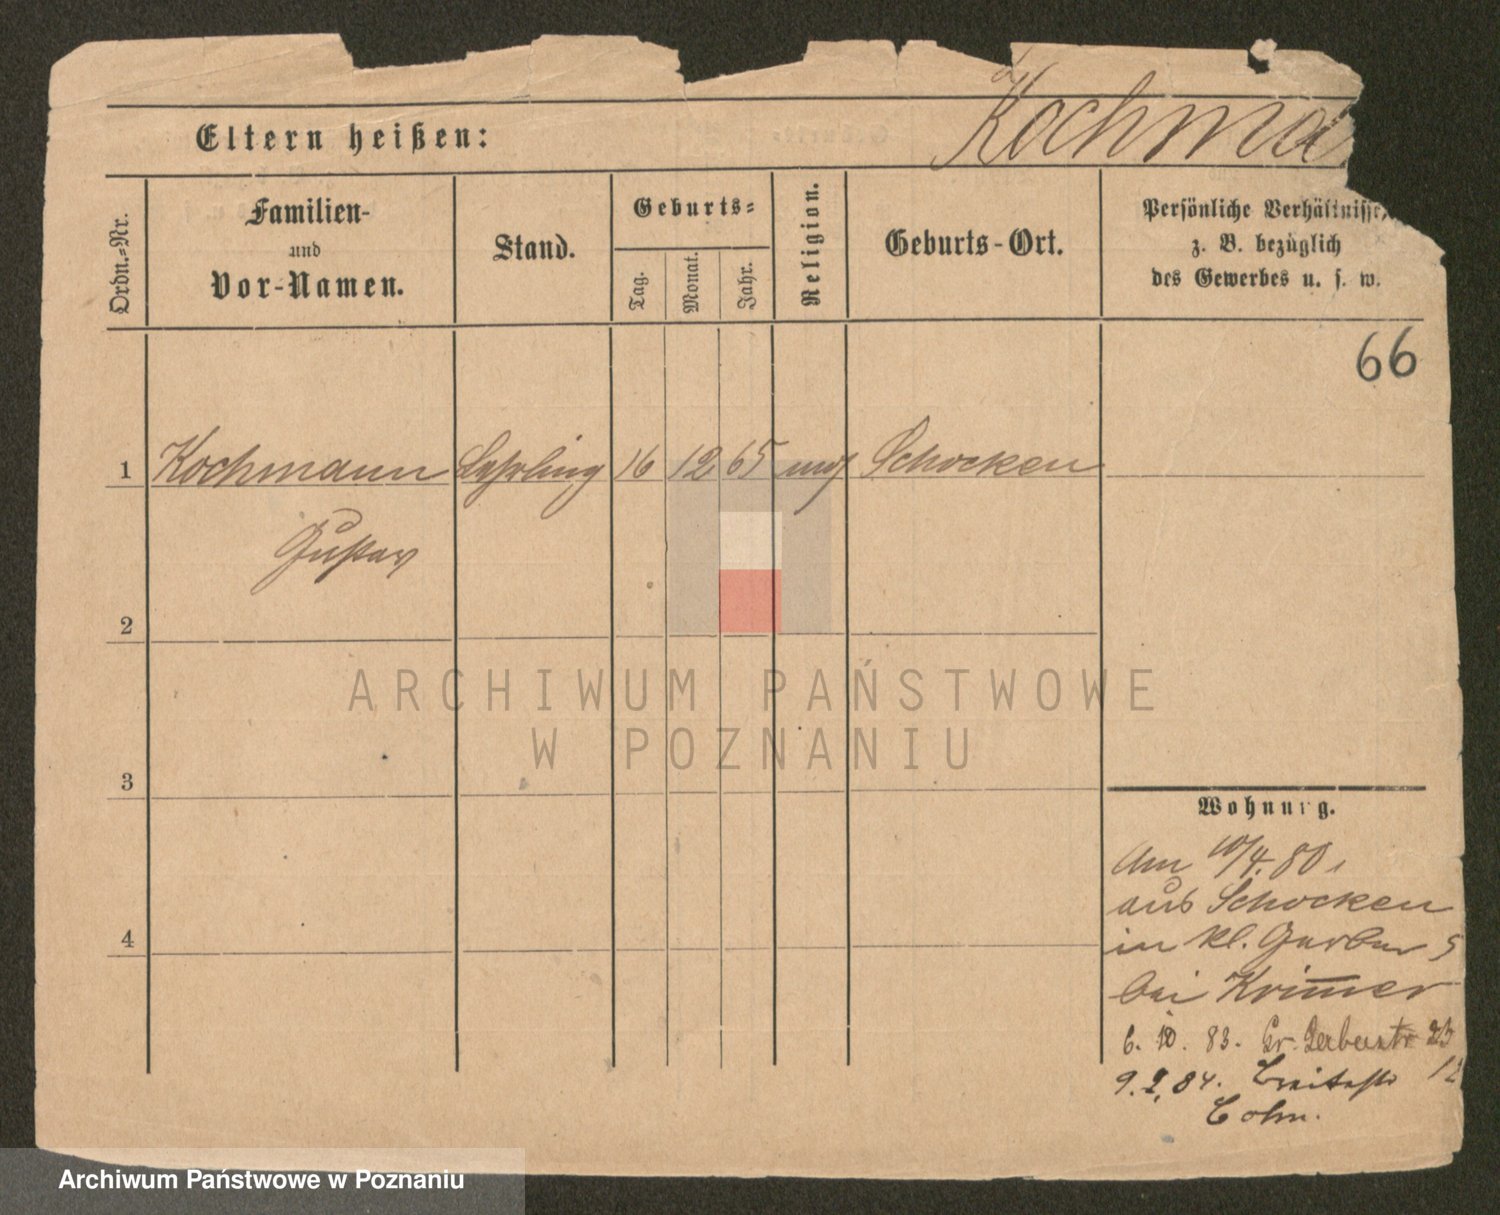 Kochma
Eltern heißen:
Ordn.-Nr.
Familien-
und
Vor-Namen.
Stand.
Geburts-
Tag.
Monat.
Jahr.
Religion.
Geburts-Ort.
Persönliche Verhältnisse,
z. B. bezüglich
des Gewerbes u. s. w.
66
1 Kochmann Lehrling 16 12 65 mos Schocken
Gustav
2
3
4
Wohnung.
Am 10/4. 80
aus Schocken
in kl. Gerber 5
bei Krimmer
6. 10. 83. Gr. Gerberstr 23
9. 2. 84. Breitestr 12
Cohn.
ARCHIWUM PAŃSTWOWE
W POZNANIU
Archiwum Państwowe w Poznaniu